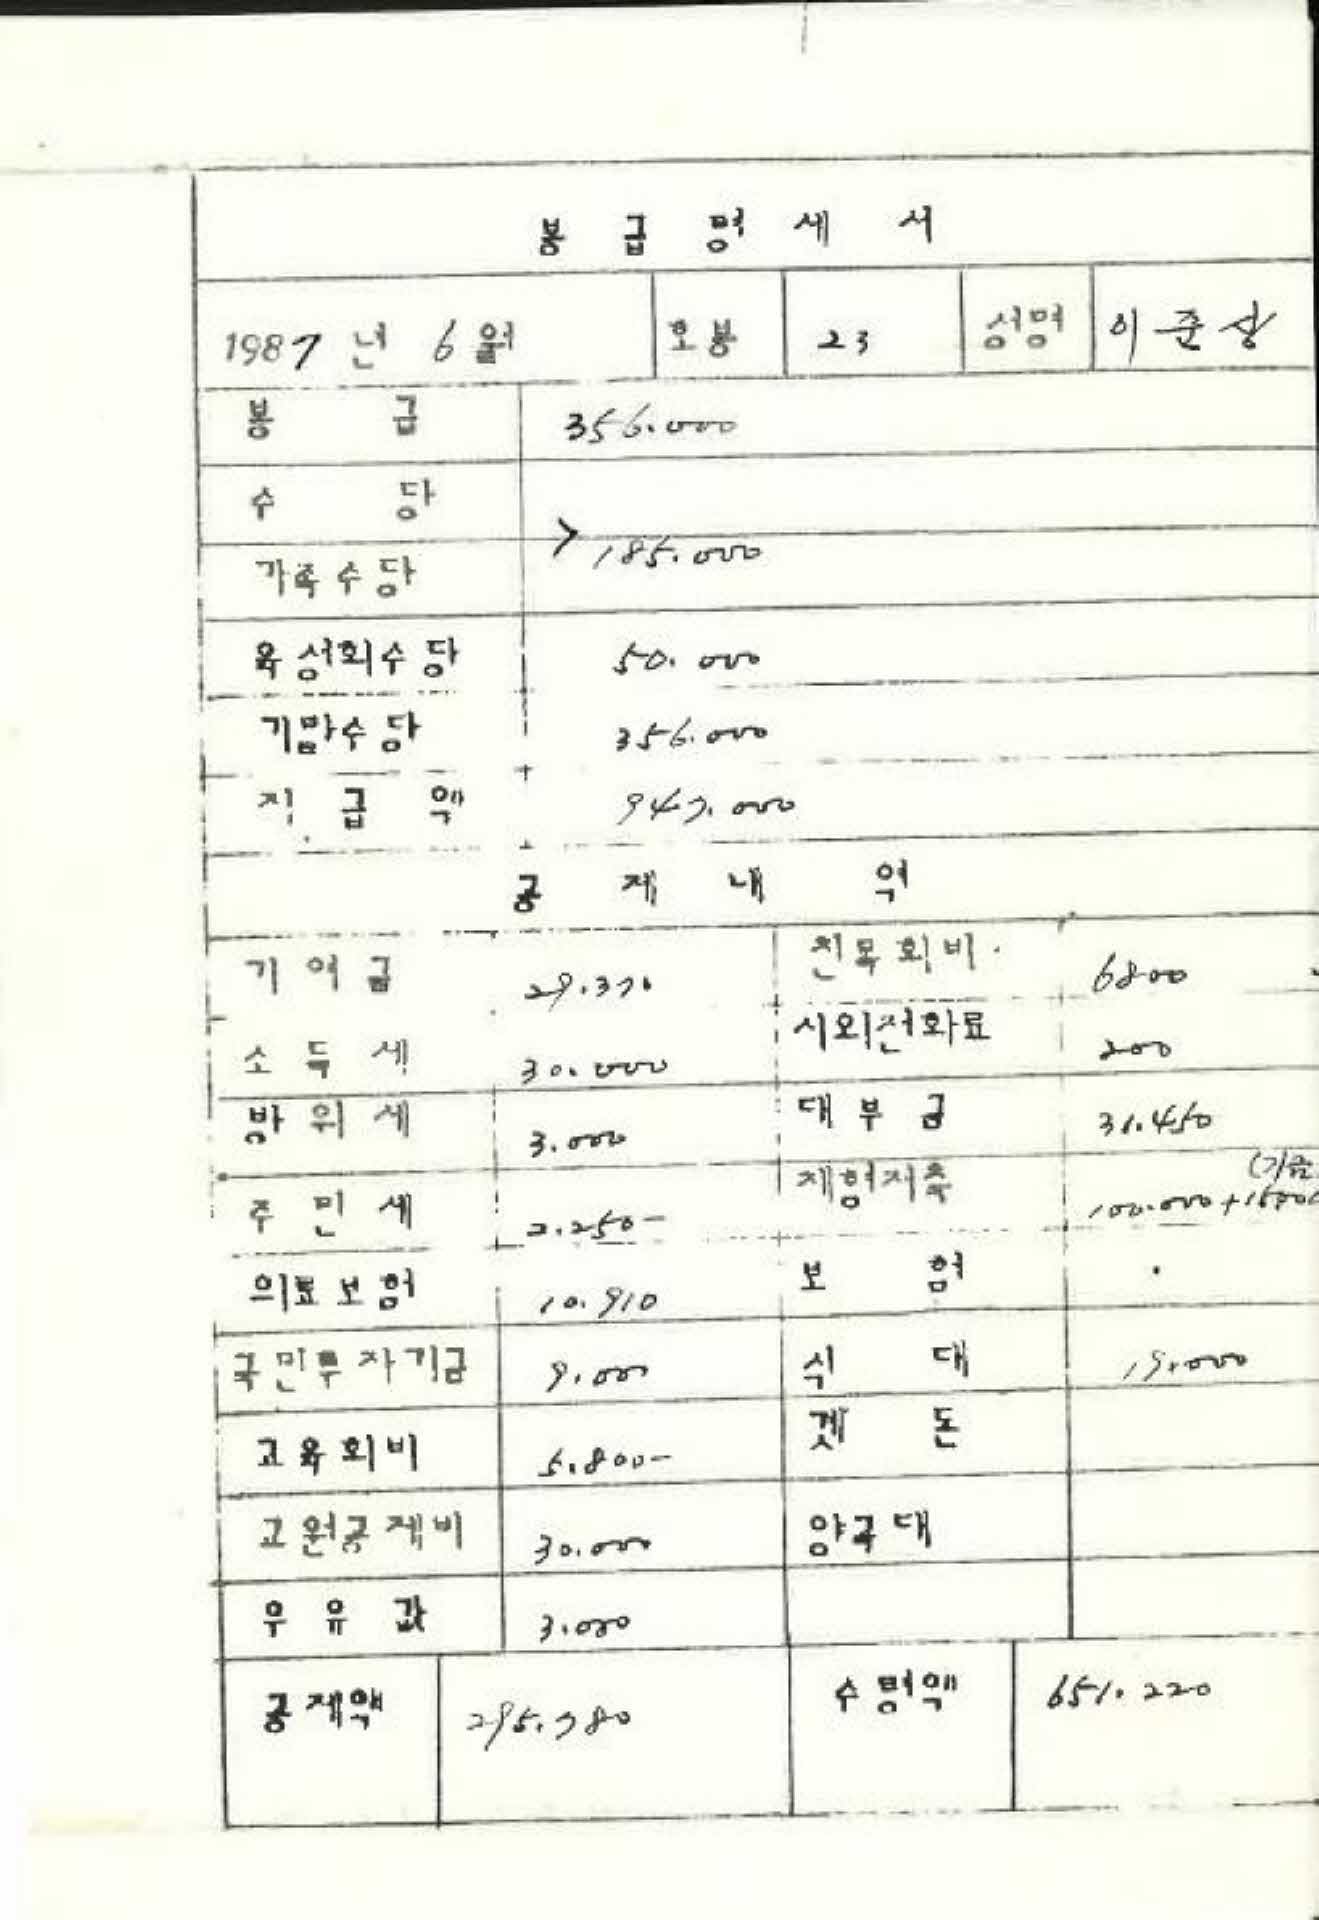 봉 급 명 세 서
1987 년 6 월 호봉 23 성명 이준상
봉 급 356.000
수 당
> 185.000
가족수당
육성회수당 50.000
기말수당 356.000
지 급 액 947.000
공 제 내 역
기 여 금 29.370 친목회비 6800
소 득 세 30.000 시외전화료 200
방 위 세 3.000 대 부 금 31.450
주 민 세 2.250- 재형저축 100.000+15000 (기금
의료보험 10.910 보 험
국민투자기금 9.000 식 대 19.000
교육회비 5.800- 곗 돈
교원공제비 30.000 양곡대
우 유 값 3.000
공제액 295.780 수령액 651.220